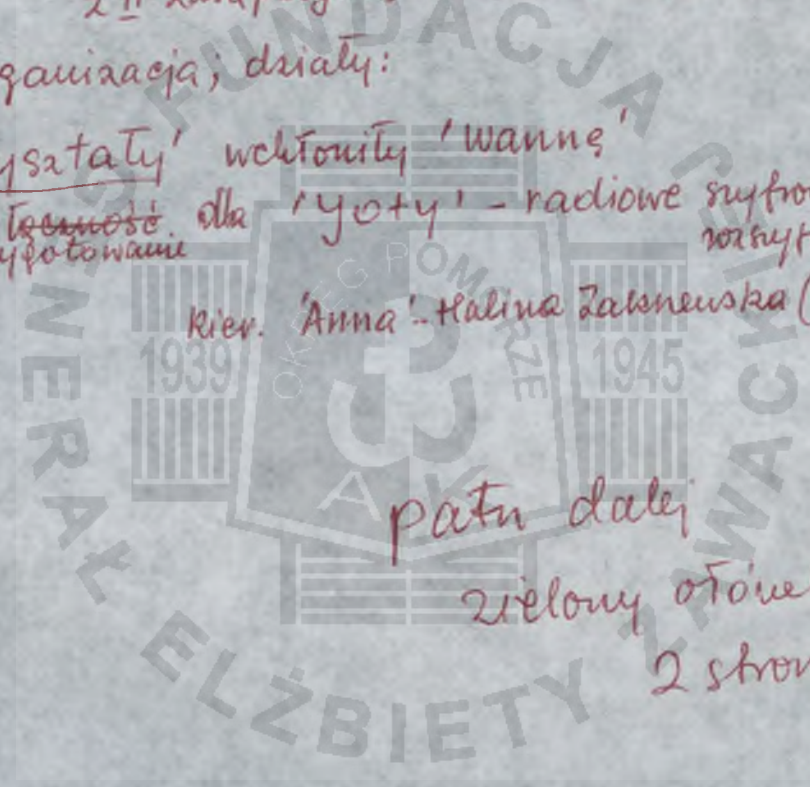 2 II
ganizacja; działy:
yształy' wchłoniły 'wannę'
łączność dla 'Yoty' - radiowe szyfro
ygotowanie rozszyf
kier. 'Anna' - Halina Zakrzewska (
patrz dalej
zielony ołówe
2 stron
FUNDACJA GENERAŁ ELŻBIETY ZAWACKIEJ
OKRĘG POMORZE
1939 1945
AK